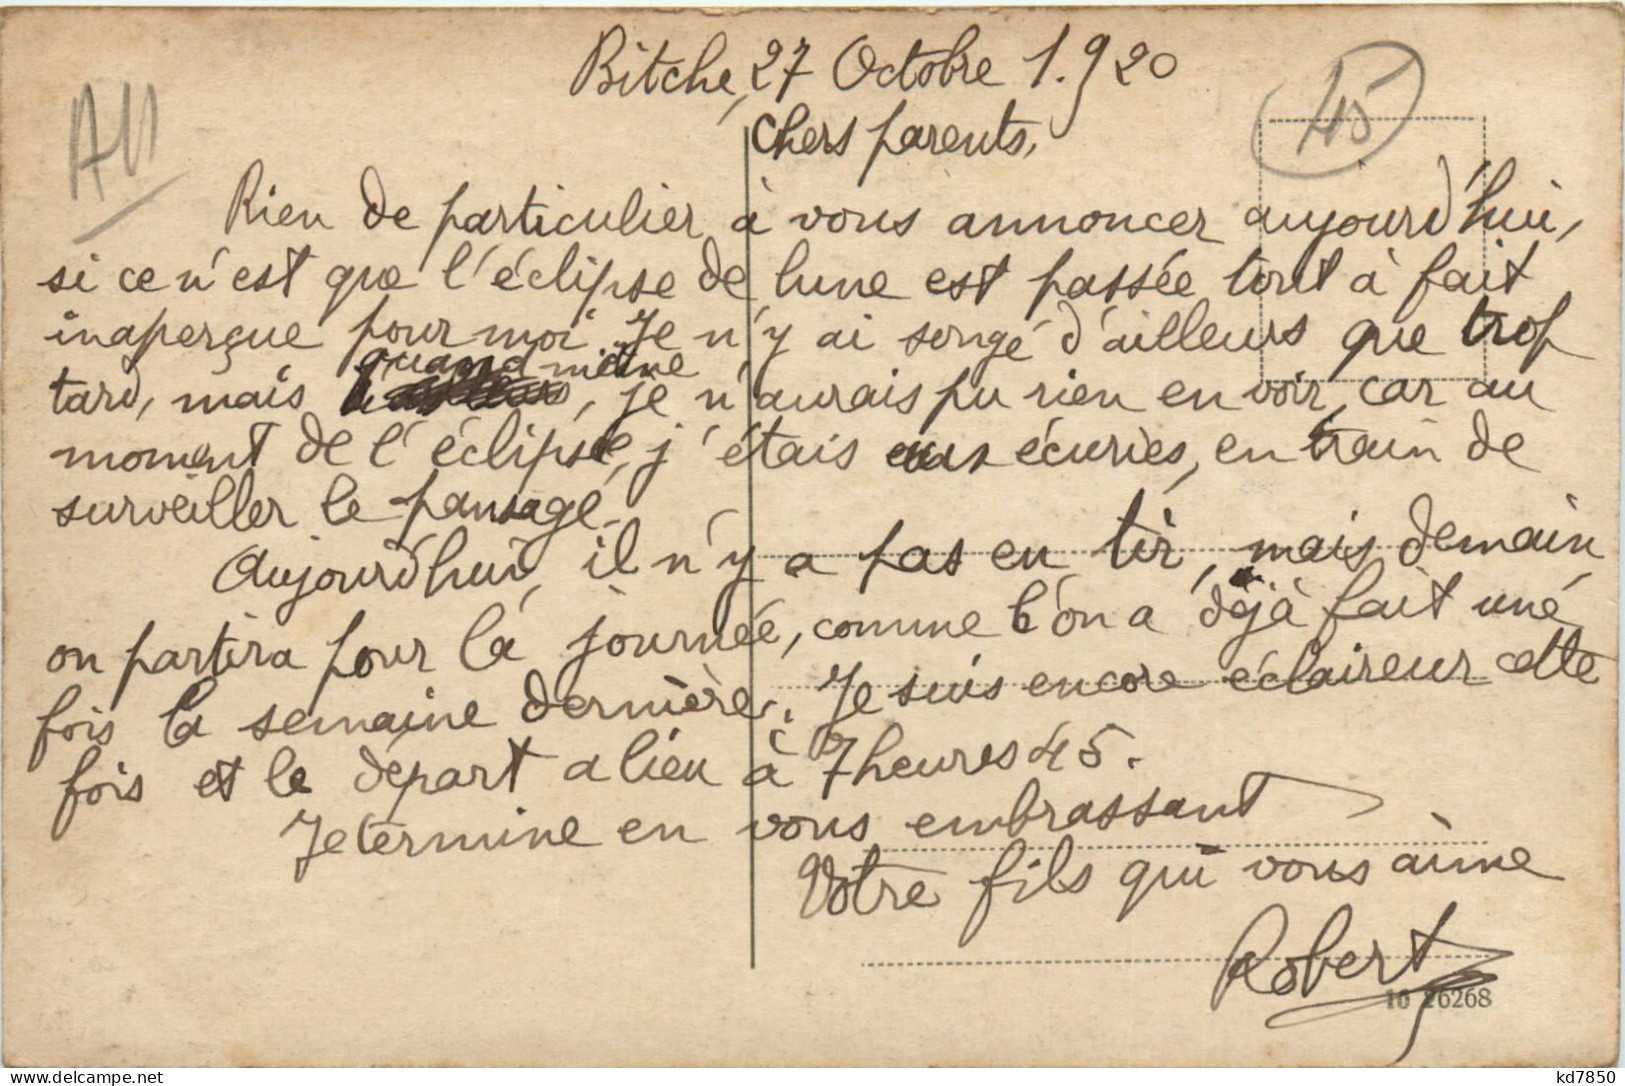 Bitche, 27 Octobre 1.920
AU
45
Chers parents,
Rien de particulier à vous annoncer aujourd'hui,
si ce n'est que l'éclipse de lune est passée tout à fait
inaperçue pour moi. Je n'y ai songé d'ailleurs que trop
quand même
tard, mais, je n'aurais pu rien en voir, car au
moment de l'éclipse, j'étais aux écuries, en train de
surveiller le pansage.
Aujourd'hui, il n'y a pas eu tir, mais demain
on partira pour la journée, comme l'on a déjà fait une
fois la semaine dernière. Je suis encore éclaireur cette
fois et le départ a lieu à 7 heures 45.
Je termine en vous embrassant
Votre fils qui vous aime
Robert
10 26268
kd7850